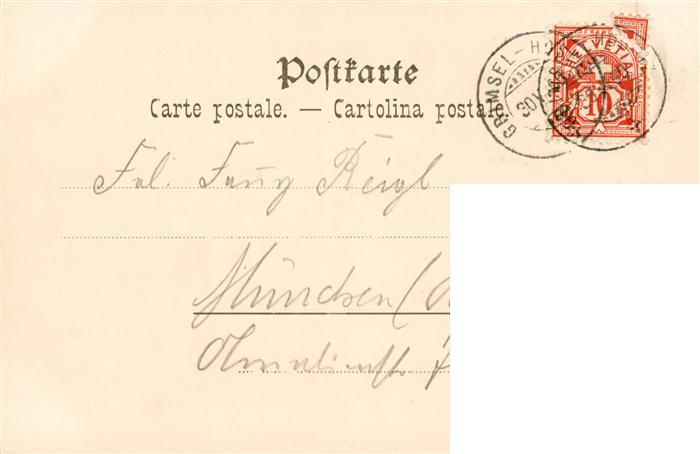 Postkarte
Carte postale. — Cartolina postale.
GRIMSEL-H
HELVETIA
10
Frl. Fanny Reigl
München (